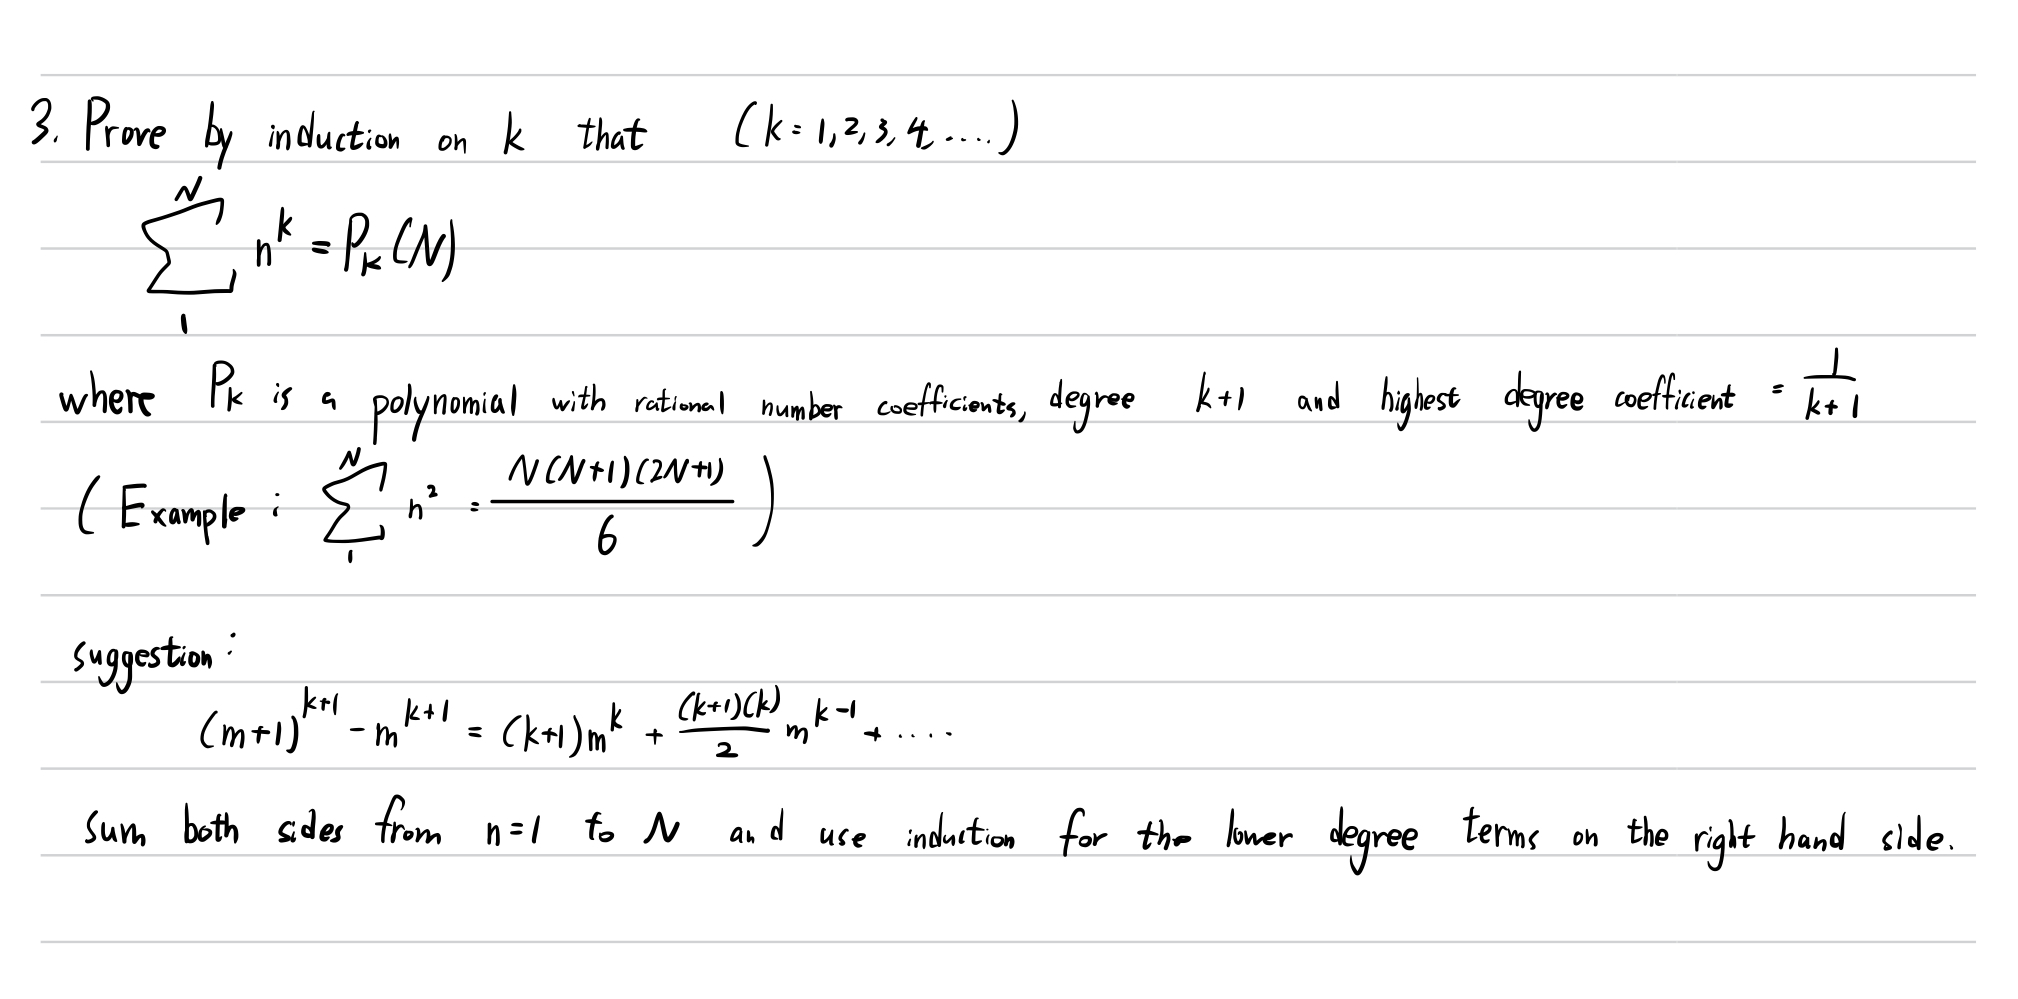 3. Prove by induction on k that (k = 1, 2, 3, 4, ....)
\sum_{1}^{N} n^k = P_k(N)
where P_k is a polynomial with rational number coefficients, degree k+1 and highest degree coefficient = \frac{1}{k+1}
(Example: \sum_{1}^{N} n^2 = \frac{N(N+1)(2N+1)}{6})
suggestion:
(m+1)^{k+1} - m^{k+1} = (k+1)m^k + \frac{(k+1)(k)}{2} m^{k-1} + ....
Sum both sides from n=1 to N and use induction for the lower degree terms on the right hand side.